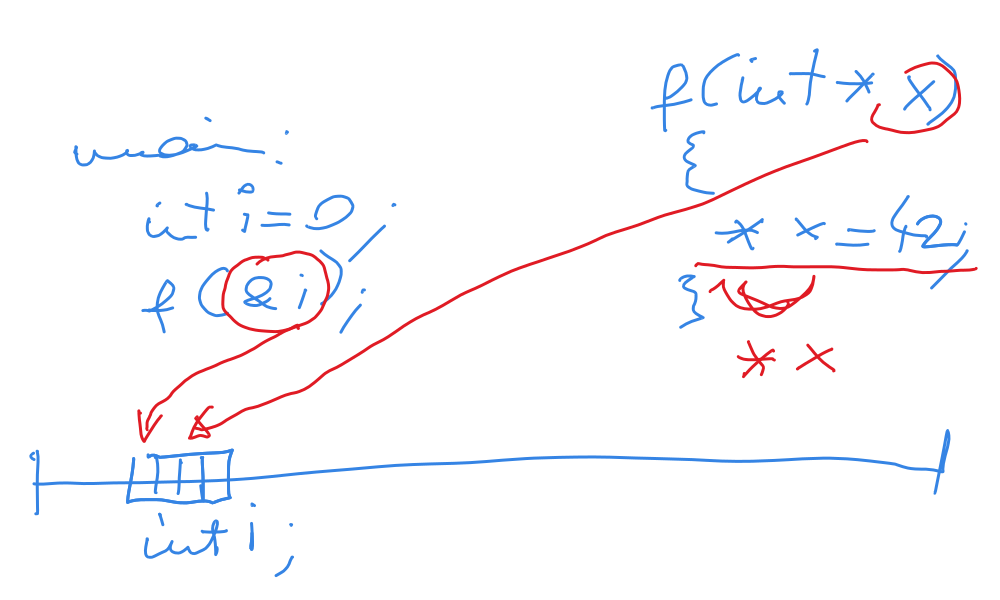 main:
int i = 0;
f(&i);
f(int * x)
{
* x = 42;
}
* x
int i;